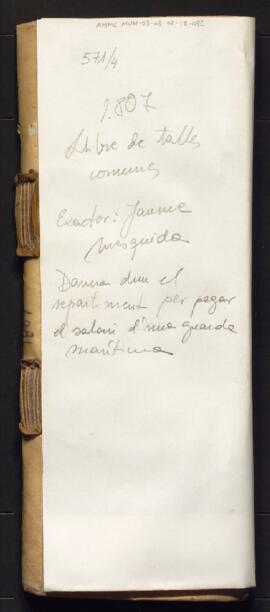 AMMC MUN-03-03-03-18-092
571/4
1.807
Llibre de talles
comunes
Exactor: Jaume
Mesquida
Darrera duu el
repartiment per pagar
el salari d'una guarda
marítima